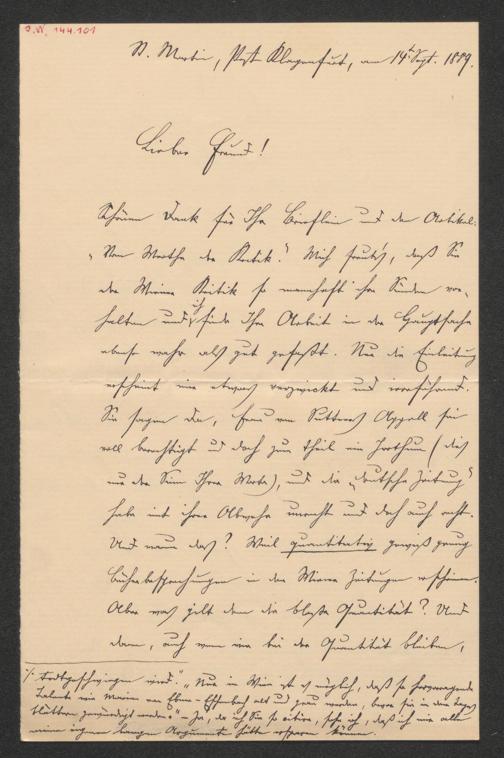 J.N. 144.101
St. Martin, Post Klagenfurt, am 14t. Sept. 1889.
Lieber Freund!
Schönen Dank für Ihr Brieflein und den Artikel:
"Vom Werthe der Kritik." Mich freut's, daß Sie
der Wiener Kritik so mannhaft ihre Sünden vor-
halten und ich finde Ihre Arbeit in der Hauptsache
ebenso wahr als gut gefaßt. Nur die Einleitung
erscheint mir etwas verzwickt und irreführend.
Sie sagen da, Frau von Suttners Appell sei
voll berechtigt und doch zum Theil ein Irrthum (dies
nur der Sinn Ihrer Worte), und die "Deutsche Zeitung"
habe mit ihrer Abwehr unrecht und doch auch recht.
Und warum das? Weil quantitativ gewiß genug
Bücherbesprechungen in den Wiener Zeitungen erscheinen.
Aber was gilt denn die bloße Quantität? Und
dann, auch wenn wir bei der Quantität bleiben,
todtgeschwiegen wird." "Nur in Wien ist es möglich, daß so hervorragende
Talente wie Marie von Ebner-Eschenbach alt und grau werden, bevor sie in den Tages-
blättern gewürdigt werden." Ja, da ich Sie so citire, sehe ich, daß ich mir alle
meine eigenen langen Argumente hätte ersparen können.